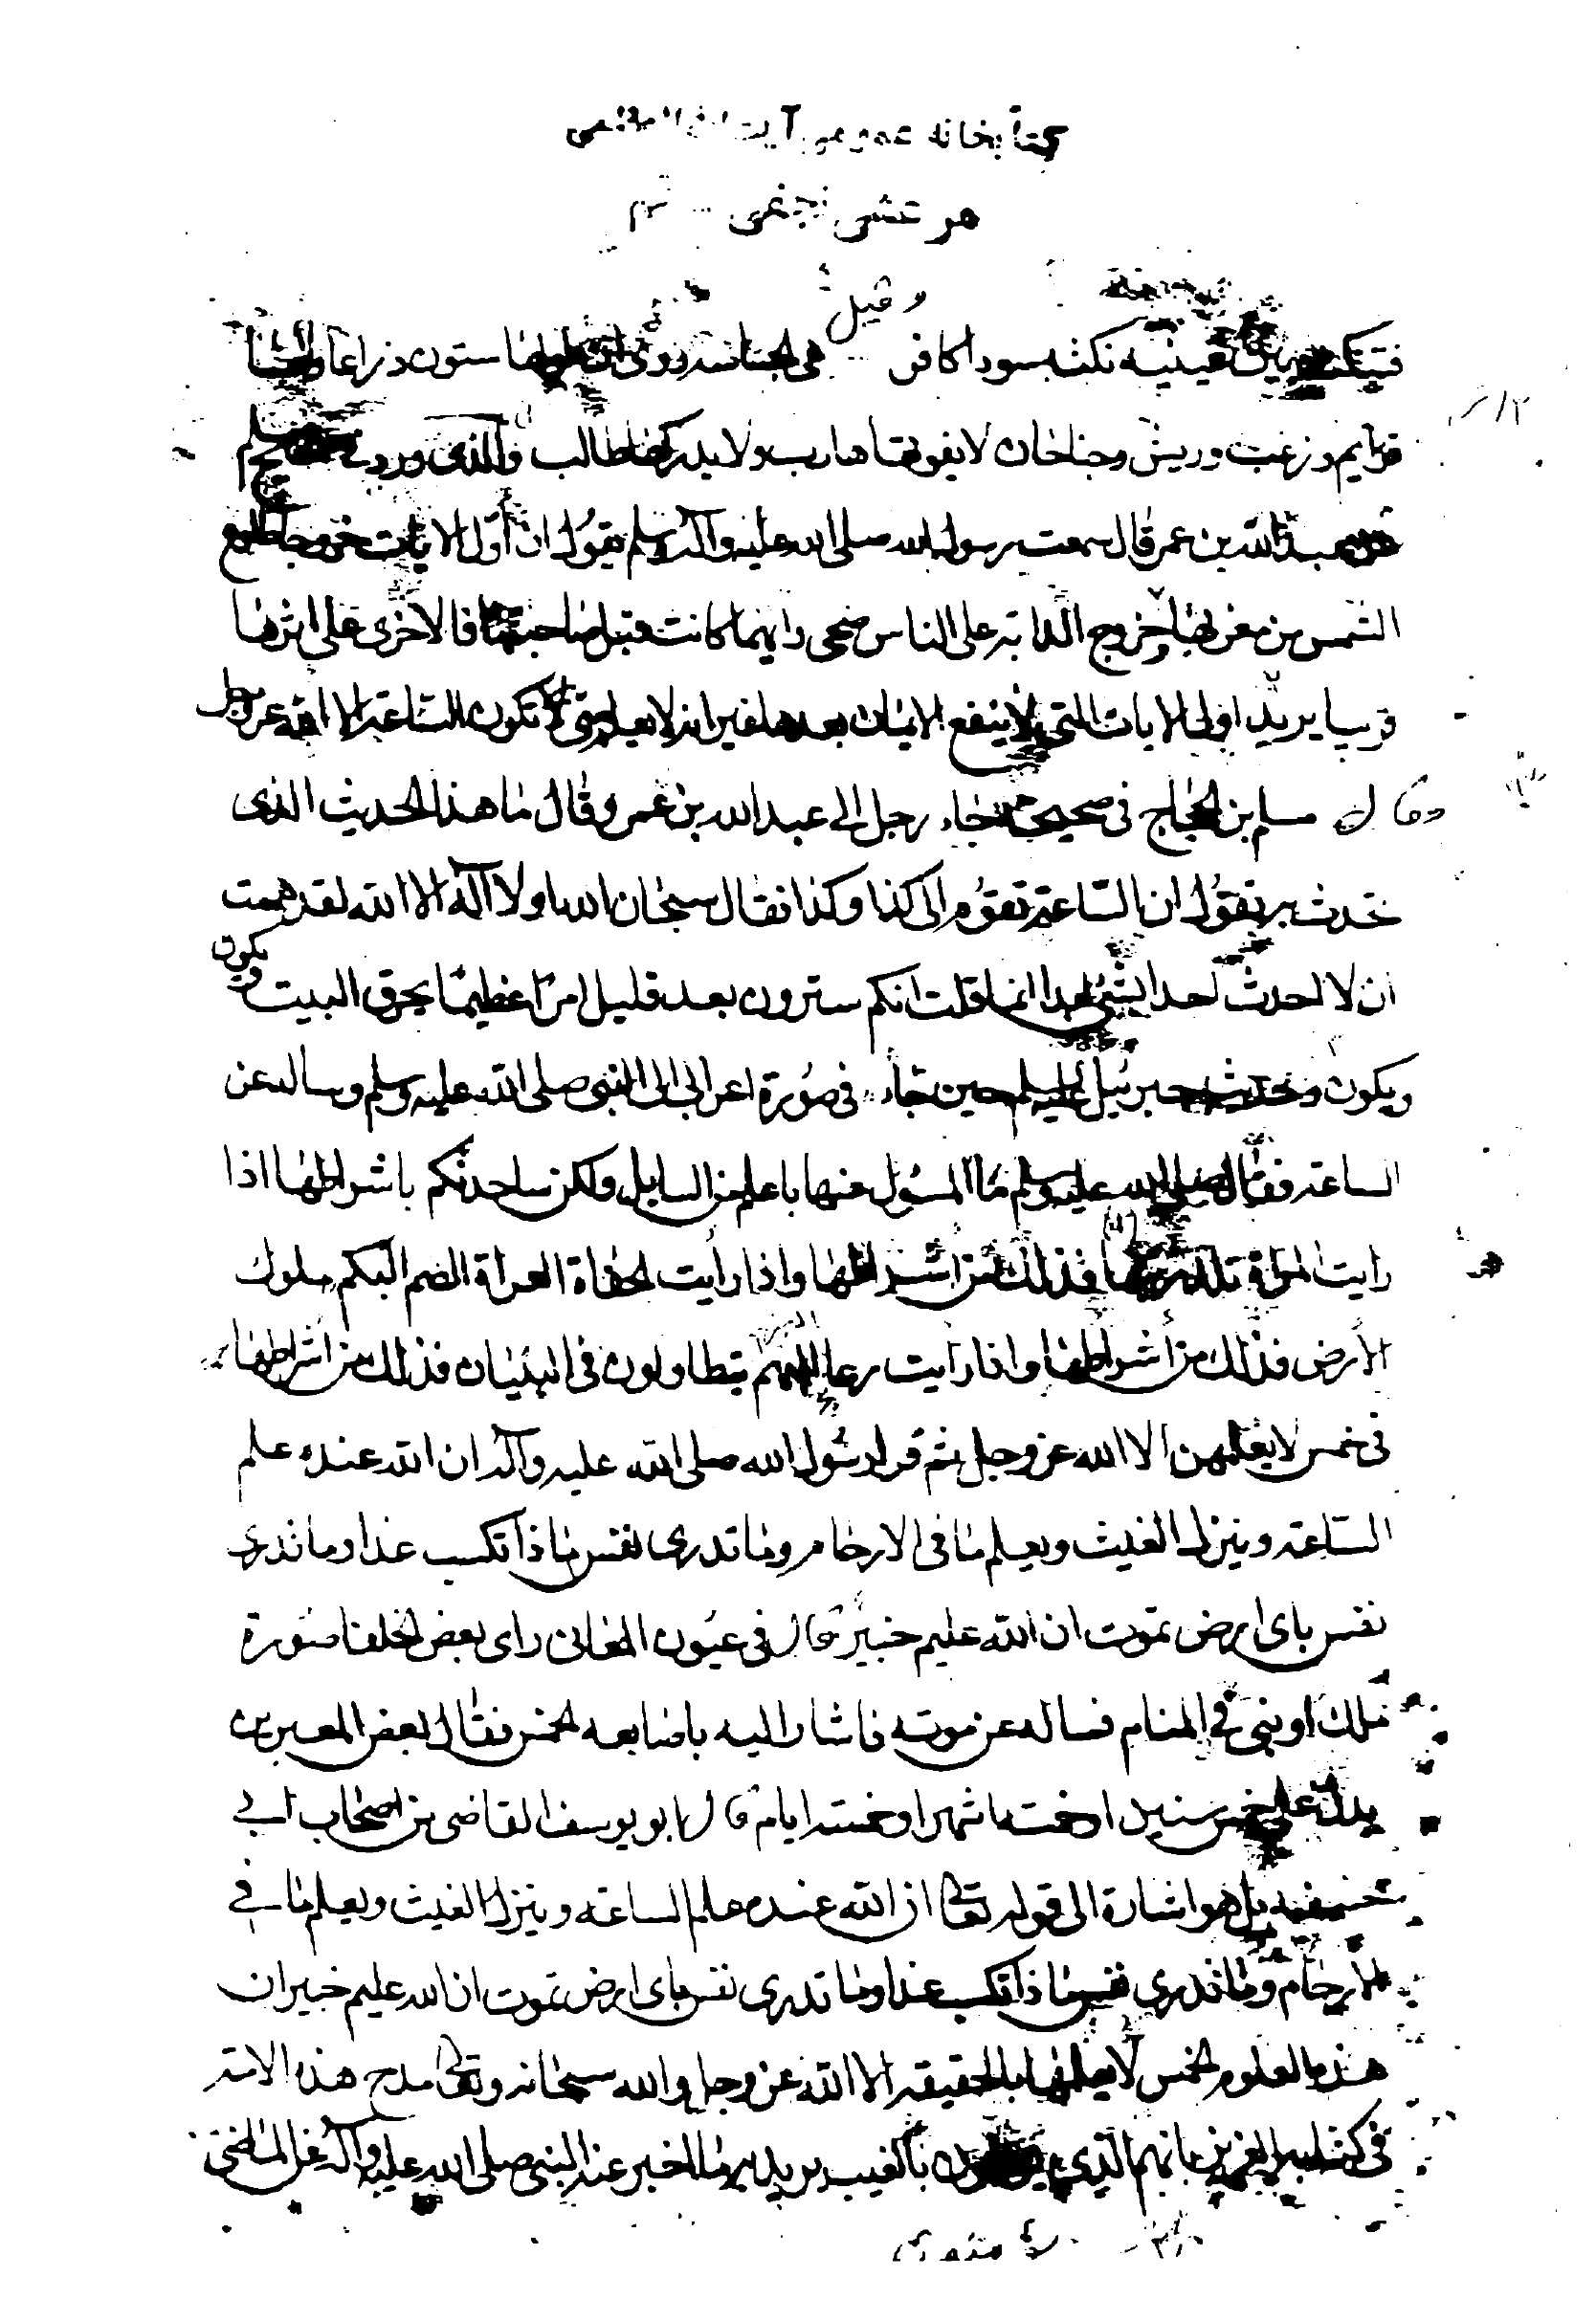 كتابخانه عمومى آيت الله العظمى
مرعشى نجفى - قم
فتنكت بين عينيه نكته سودا كافر وقيل هى الجساسه روى ان طولها ستون ذراعا ولها
قوايم وزغب وريش وجناحان لا يفوتها هارب ولا يدركها طالب والذى ورد صحيح مسلم
عن عبد الله بن عمر قال سمعت رسول الله صلى الله عليه وآله وسلم يقول ان أول الايات خروجا طلوع
الشمس من مغربها وخروج الدابة على الناس ضحى وايهما كانت قبل صاحبتها فالاخرى على اثرها
قريبا يريد اولى الايات التى لا ينفع الايمان بعدها غير انه لا يعلم متى تكون الساعة الا الله عز وجل
وقال مسلم بن الحجاج فى صحيحه جاء رجل الى عبد الله بن عمر وقال ما هذا الحديث الذى
تحدث به تقول ان الساعة تقوم الى كذا وكذا فقال سبحان الله ولا آله الا الله لقد هممت
ان لا احدث احدا بشئ ابدا انما قلت انكم سترون بعد قليل امرا عظيما يحرق البيت ويكون
ويكون وحديث جبرئيل عليه السلم حين جاء فى صورة اعرابى الى النبى صلى الله عليه وسلم وساله عن
الساعة فقال صلى الله عليه وسلم ما المسؤل عنها باعلم من السايل ولكن ساحدثكم باشراطها اذا
رايت المراة تلد ربها فذلك من اشراطها واذا رايت الحفاة العراة الصم البكم ملوك
الأرض فذلك من أشراطها واذا رايت رعا البهم يتطاولون فى البنيان فذلك من اشراطها
فى خمس لا يعلمهن الا الله عز وجل ثم قرا رسول الله صلى الله عليه وآله ان الله عنده علم
الساعة وينزل الغيث ويعلم ما فى الارحام وما تدرى نفس ماذا تكسب غدا وما تدرى
نفس باى ارض تموت ان الله عليم خبير قال فى عيون المعانى راى بعض الخلفا صورة
ملك او نبى فى المنام فساله عن موته فاشار اليه باصابعه الخمس فقال بعض المعبرين
يدل على خمس سنين او خمسة اشهر او خمسة ايام قال ابو يوسف القاضى من اصحاب ابى
حنيفه بل هو اشارة الى قوله تعالى ان الله عنده علم الساعه وينزل الغيث ويعلم ما فى
الارحام وما تدرى نفس ماذا تكسب غدا وما تدرى نفس باى ارض تموت ان الله عليم خبير ان
هذه العلوم الخمس لا يعلمها بالحقيقه الا الله عز وجل والله سبحانه وتعالى مدح هذه الامة
فى كتابه العزيز بانهم الذين يؤمنون بالغيب يريد به ما اخبر عنه النبى صلى الله عليه وآله